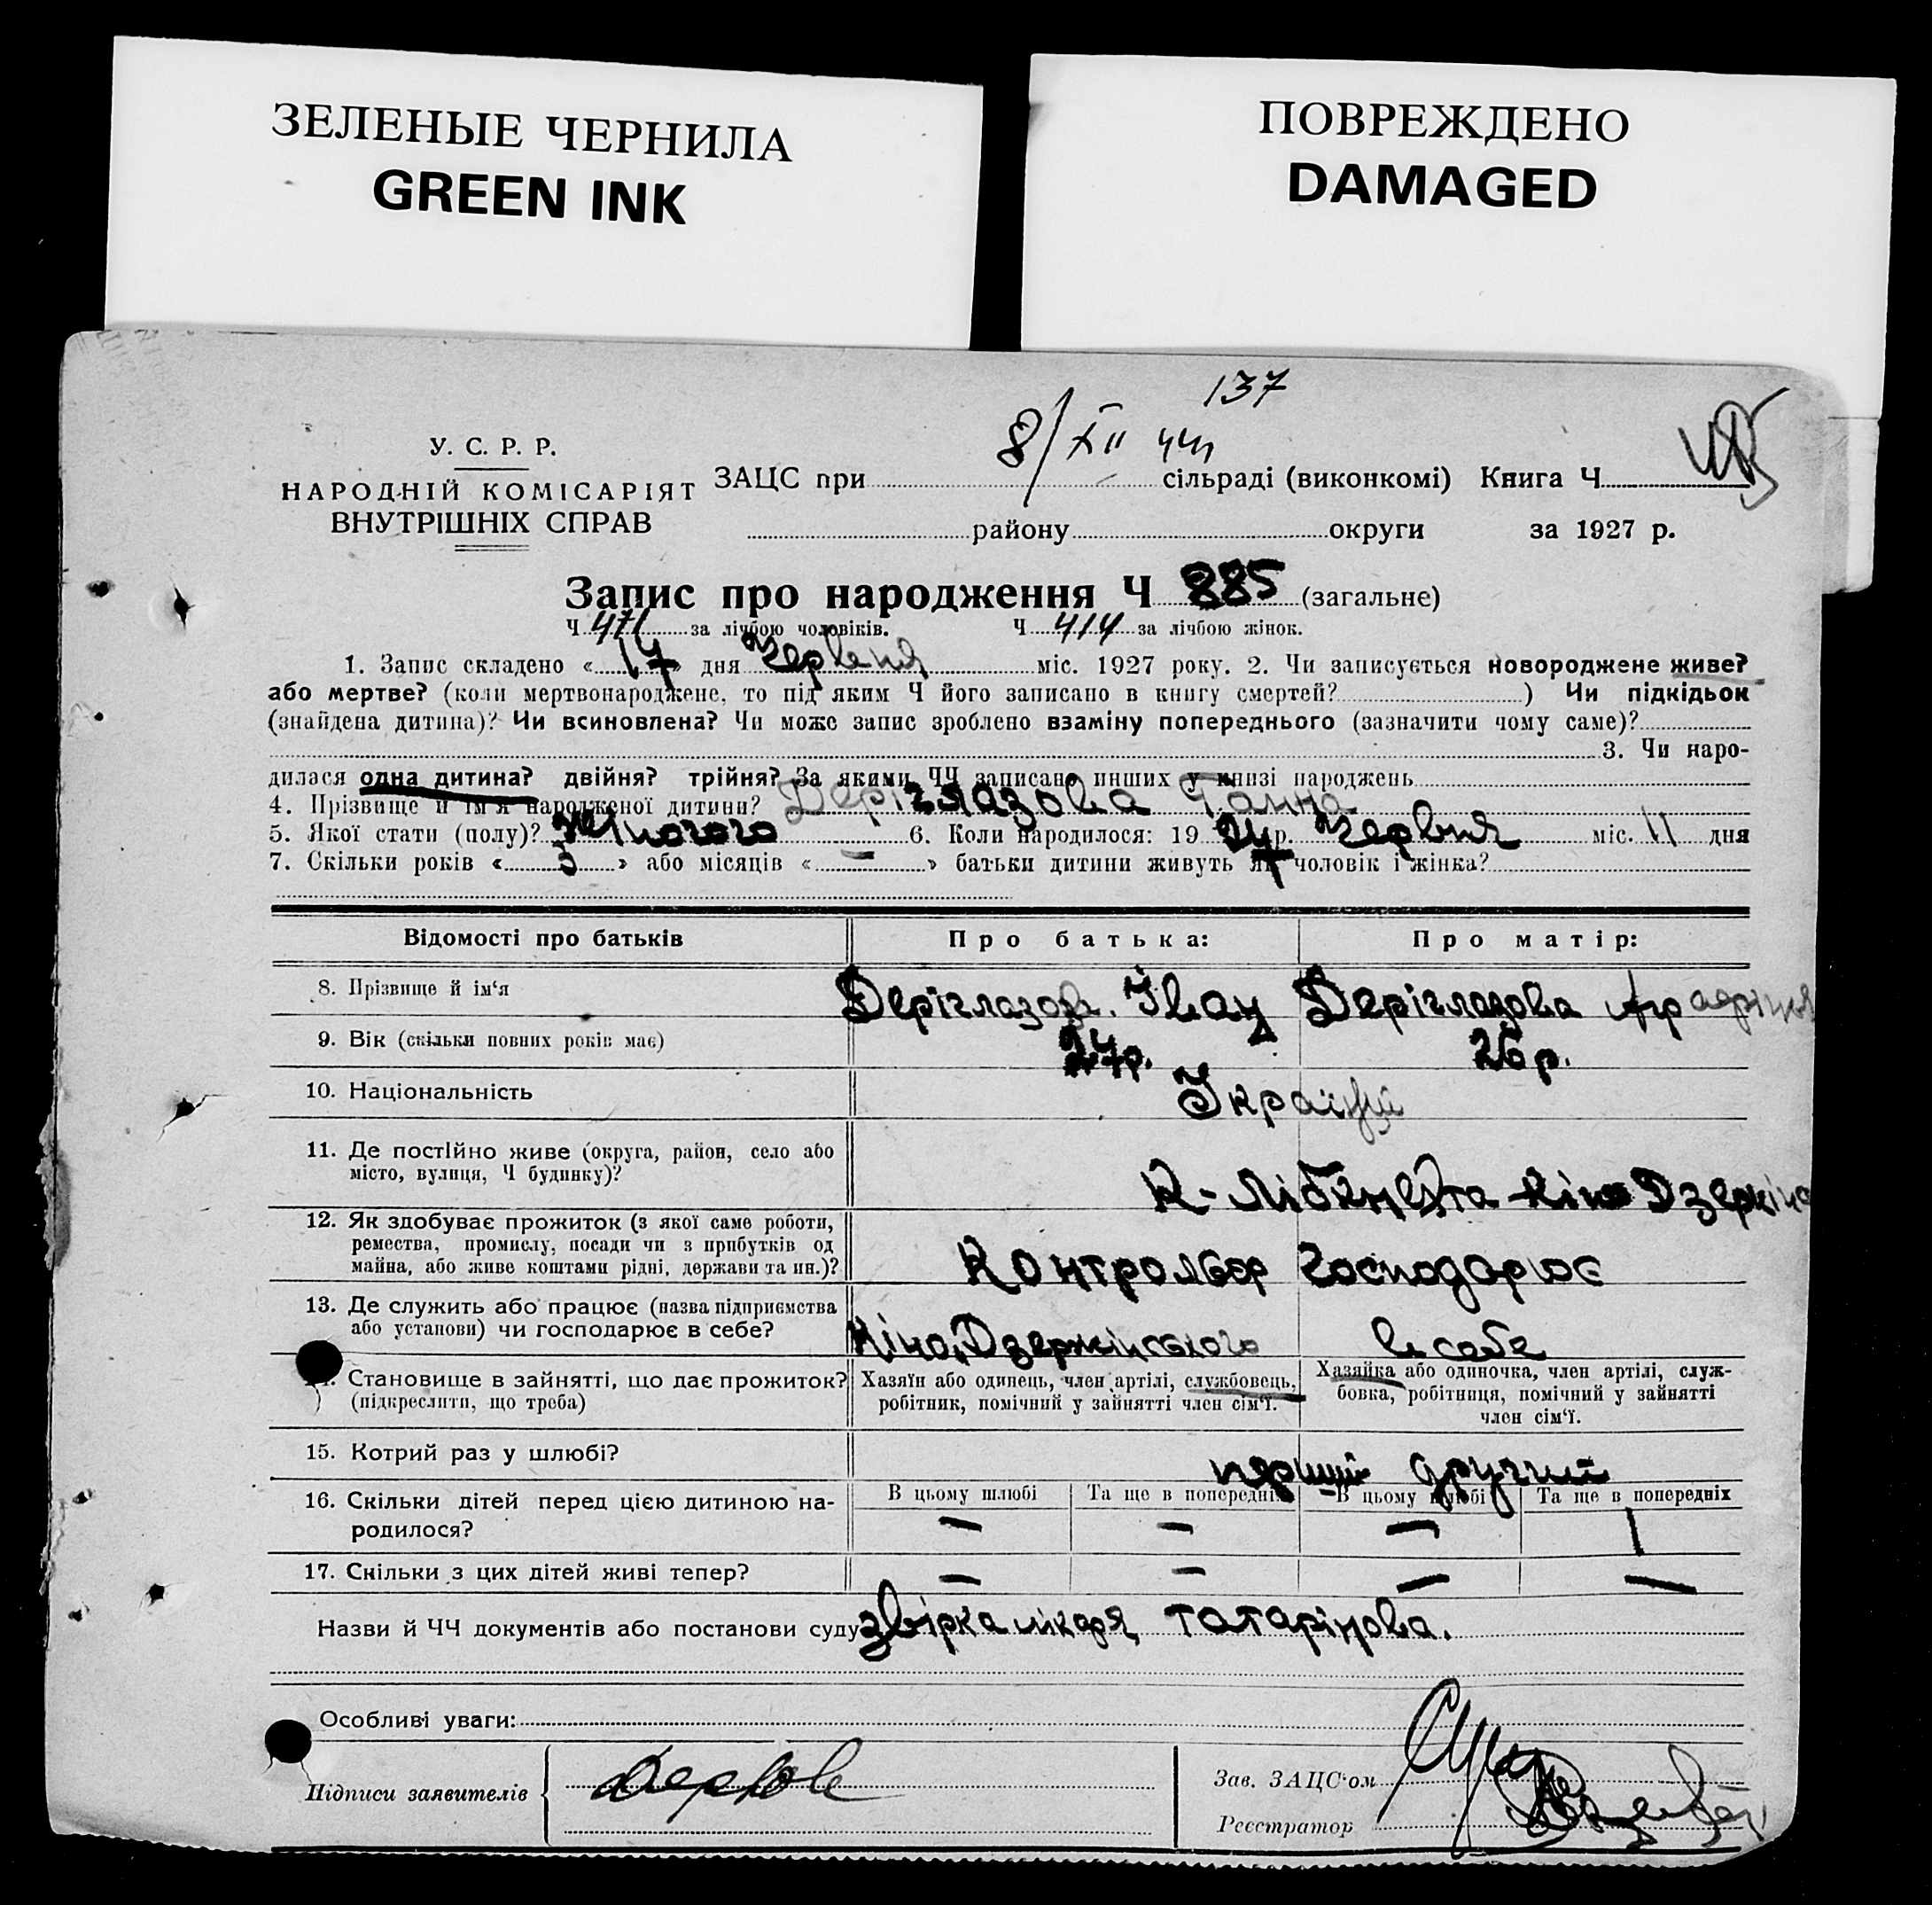 ЗЕЛЕНЫЕ ЧЕРНИЛА
GREEN INK
ПОВРЕЖДЕНО
DAMAGED
137
8/XII 44
У. С. Р. Р.
НАРОДНІЙ КОМІСАРІЯТ
ВНУТРІШНІХ СПРАВ
ЗАЦС при сільраді (виконкомі) Книга Ч
району округи за 1927 р.
Запис про народження Ч 885 (загальне)
Ч 471 за лічбою чоловіків. Ч 414 за лічбою жінок.
1. Запис складено «17» дня Червеня міс. 1927 року. 2. Чи записується новороджене живе?
або мертве? (коли мертвонароджене, то під яким Ч його записано в книгу смертей? ) Чи підкідьок
(знайдена дитина)? Чи всиновлена? Чи може запис зроблено взаміну попереднього (зазначити чому саме)?
3. Чи наро-
дилася одна дитина? двійня? трійня? За якими ЧЧ записано инших у книзі народжень
4. Прізвище й ім'я народженої дитини? Деріглазова Ганна
5. Якої стати (полу)? Жіночого 6. Коли народилося: 19 р. Червня міс. 11 дня
7. Скільки років « 3 » або місяців « — » батьки дитини живуть як чоловік і жінка?
Відомості про батьків Про батька: Про матір:
8. Прізвище й ім'я Деріглазов Іван Деріглазова
9. Вік (скільки повних років має) 24р. 26р.
10. Національність Україн
11. Де постійно живе (округа, район, село або
місто, вулиця, Ч будинку)?
К-Лібкнехта Кіно Дзержин
12. Як здобуває прожиток (з якої саме роботи,
ремества, промислу, посади чи з прибутків од
майна, або живе коштами рідні, держави та ин.)?
Контрольор Господарює
13. Де служить або працює (назва підприємства
або установи) чи господарює в себе?
Кіно Дзержінського в себе
Становище в зайнятті, що дає прожиток?
(підкреслити, що треба)
Хазяїн або одинець, член артілі, службовець,
робітник, помічний у зайнятті член сім'ї.
Хазяйка або одиночка, член артілі, служ-
бовка, робітниця, помічний у зайнятті
член сім'ї.
15. Котрий раз у шлюбі? перший другий
В цьому шлюбі Та ще в попередніх В цьому шлюбі Та ще в попередніх
16. Скільки дітей перед цією дитиною на-
родилося?
— — — 1
17. Скільки з цих дітей живі тепер? — — — —
Назви й ЧЧ документів або постанови суду звірка лікаря Татарінова.
Особливі уваги:
Підписи заявителів
Зав. ЗАЦС'ом
Реєстратор